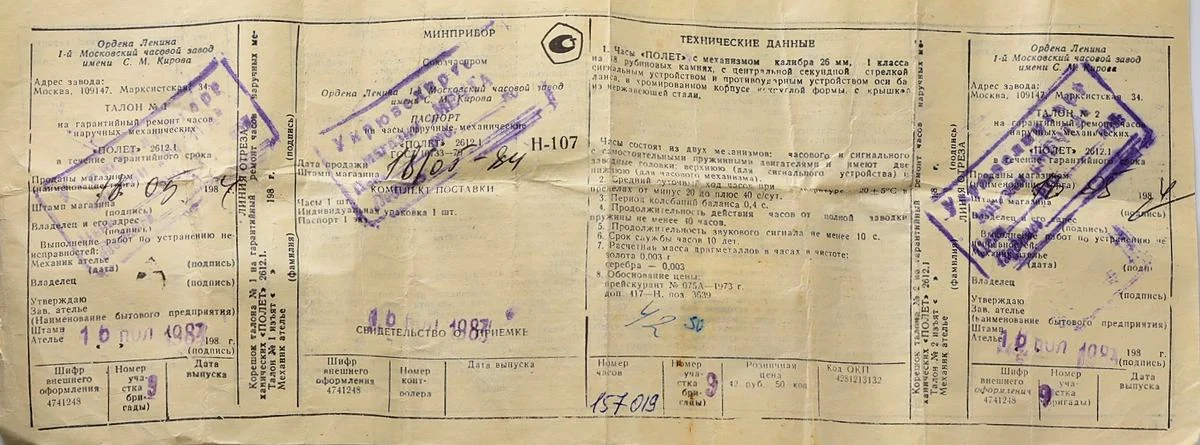 Ордена Ленина
1-й Московский часовой завод
имени С. М. Кирова
Адрес завода:
Москва, 109147. Марксистская 34.
ТАЛОН № 1
на гарантийный ремонт часов
наручных механических
«ПОЛЕТ» 2612.1
в течение гарантийного срока
Проданы магазином
(наименование
18 05 1984
Штамп магазина
(подпись)
Владелец и его адрес
(подпись)
Выполнение работ по устранению не-
исправностей:
Механик ателье
(дата) (подпись)
Владелец
(подпись)
Утверждаю
Зав. ателье
(Наименование бытового предприятия)
Штамп
Ателье
198 г.
(подпись)
Шифр внешнего оформления
4741248
Номер участка бригады)
9
Дата выпуска
Корешок талона № 1 на гарантийный ремонт часов наручных ме-
ханических «ПОЛЕТ» 2612.1.
Талон № 1 изъят « » 198 г.
Механик ателье (фамилия) (подпись)
ЛИНИЯ ОТРЕЗА
МИНПРИБОР
Союзчаспром
Ордена Ленина 1-й Московский часовой завод
имени С. М. Кирова
ПАСПОРТ
на часы наручные механические
«ПОЛЕТ» 2612.1
ГОСТ 10733-79
Н-107
Дата продажи
18/05-84
Штамп магазина
КОМПЛЕКТ ПОСТАВКИ
Часы 1 шт.
Индивидуальная упаковка 1 шт.
Паспорт 1
СВИДЕТЕЛЬСТВО О ПРИЕМКЕ
Шифр внешнего оформления
4741248
Номер контролера
Дата выпуска
ТЕХНИЧЕСКИЕ ДАННЫЕ
1. Часы «ПОЛЕТ» с механизмом калибра 26 мм, 1 класса
на 18 рубиновых камнях, с центральной секундной стрелкой
сигнальным устройством и противоударным устройством оси ба-
ланса, в хромированном корпусе круглой формы, с крышкой
из нержавеющей стали.
Часы состоят из двух механизмов: часового и сигнального
с самостоятельными пружинными двигателями и имеют две
заводные головки: верхнюю (для сигнального устройства) и
нижнюю (для часового механизма).
2. Средний суточный ход часов при температуре 20±5°С в
пределах от минус 20 до плюс 40 с/сут.
3. Период колебаний баланса 0,4 с.
4. Продолжительность действия часов от полной заводки
пружины не менее 40 часов.
5. Продолжительность звукового сигнала не менее 10 с.
6. Срок службы часов 10 лет.
7. Расчетная масса драгметаллов в часах в чистоте:
золота 0,003 г
серебра — 0,003
8. Обоснование цены:
прейскурант № 075А—1973 г.
доп. 417—Н. поз. 3639
42 50
Номер часов
157019
Номер участка бригады)
9
Розничная цена
42 руб. 50 коп
Код ОКП
4281213132
Корешок талона № 2 на гарантийный ремонт часов наручных ме-
ханических «ПОЛЕТ» 2612.1
Талон № 2 изъят « » 198 г.
Механик ателье (фамилия) (подпись)
ЛИНИЯ ОТРЕЗА
Ордена Ленина
1-й Московский часовой завод
имени С. М. Кирова
Адрес завода:
Москва, 109147, Марксистская 34.
ТАЛОН № 2
на гарантийный ремонт часов
наручных механических
«ПОЛЕТ» 2612.1
в течение гарантийного срока
Проданы магазином
(наименование
1984
Штамп магазина
(подпись)
Владелец и его адрес
(подпись)
Выполнение работ по устранению не-
исправностей:
Механик ателье
(дата)
Владелец
(подпись)
Утверждаю
Зав. ателье
(Наименование бытового предприятия)
Штамп
Ателье
198 г.
(подпись)
Шифр внешнего оформления
4741248
Номер участка бригады)
9
Дата выпуска